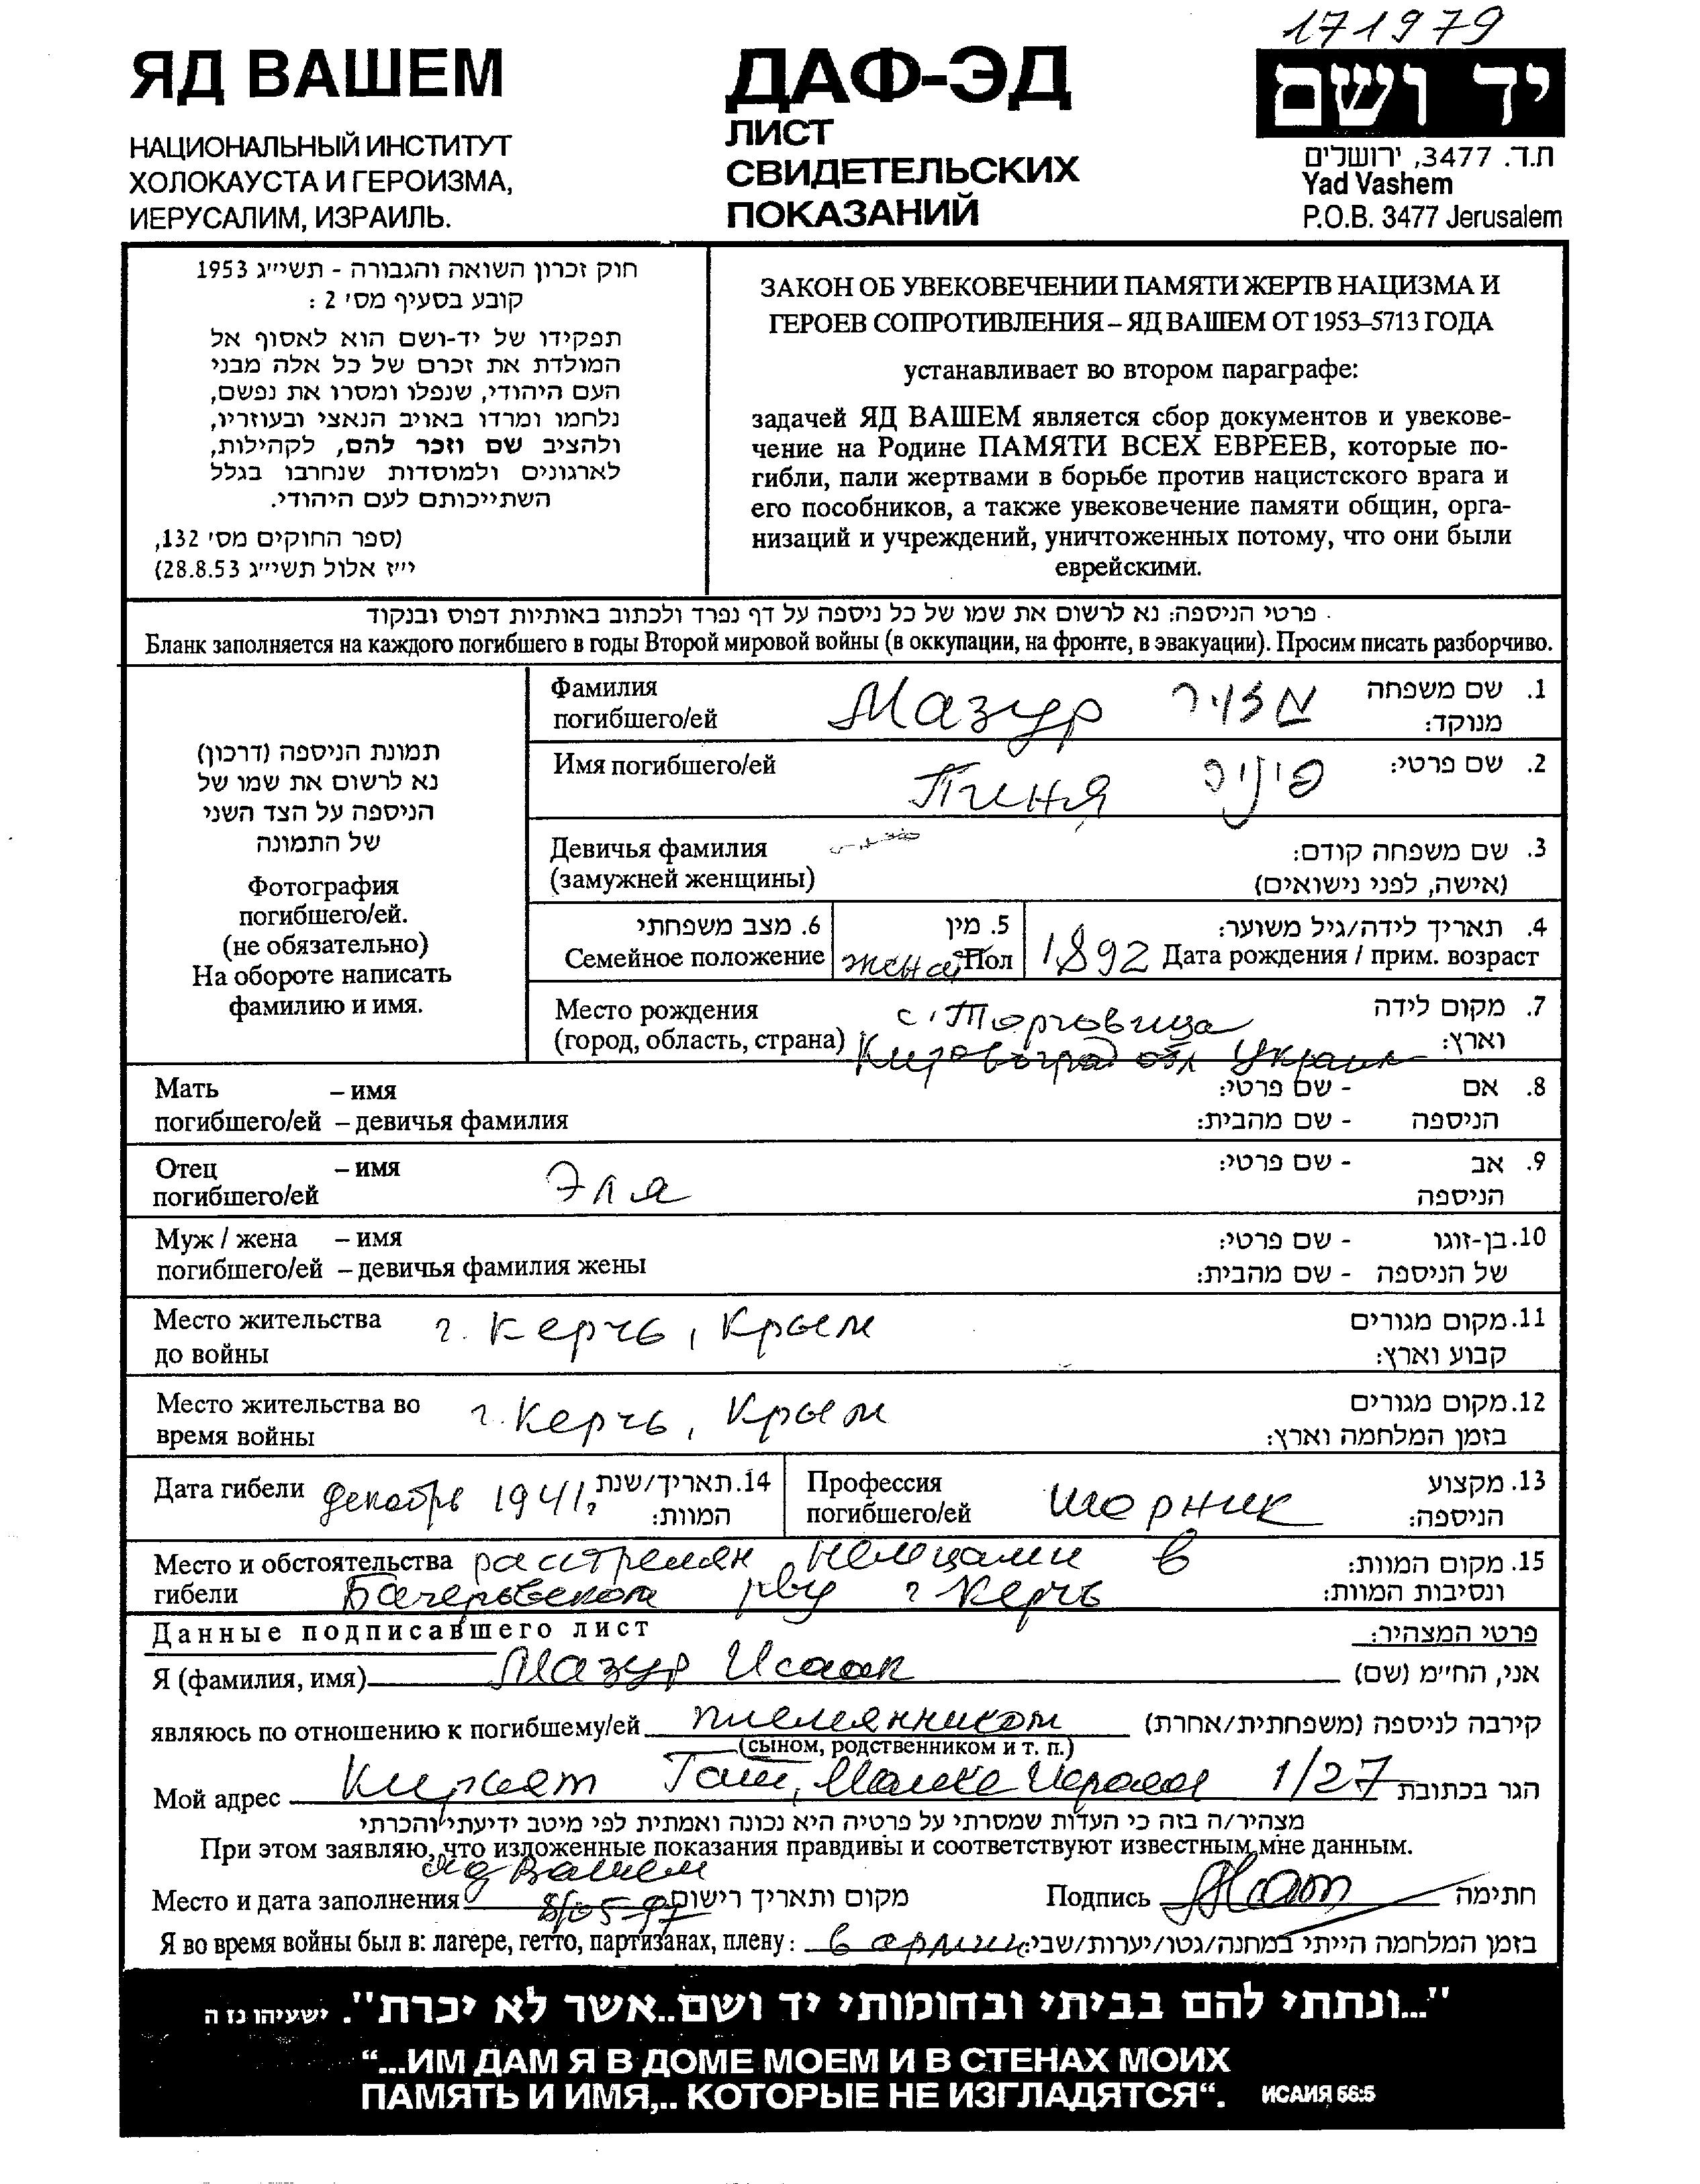 171979
ЯД ВАШЕМ
НАЦИОНАЛЬНЫЙ ИНСТИТУТ
ХОЛОКАУСТА И ГЕРОИЗМА,
ИЕРУСАЛИМ, ИЗРАИЛЬ.
ДАФ-ЭД
ЛИСТ
СВИДЕТЕЛЬСКИХ
ПОКАЗАНИЙ
יד ושם
ת.ד. 3477, ירושלים
Yad Vashem
P.O.B. 3477 Jerusalem
חוק זכרון השואה והגבורה - תשי״ג 1953
קובע בסעיף מס׳ 2 :
תפקידו של יד-ושם הוא לאסוף אל
המולדת את זכרם של כל אלה מבני
העם היהודי, שנפלו ומסרו את נפשם,
נלחמו ומרדו באויב הנאצי ובעוזריו,
ולהציב שם וזכר להם, לקהילות,
לארגונים ולמוסדות שנחרבו בגלל
השתייכותם לעם היהודי.
(ספר החוקים מס׳ 132,
י״ז אלול תשי״ג 28.8.53)
ЗАКОН ОБ УВЕКОВЕЧЕНИИ ПАМЯТИ ЖЕРТВ НАЦИЗМА И
ГЕРОЕВ СОПРОТИВЛЕНИЯ – ЯД ВАШЕМ ОТ 1953–5713 ГОДА
устанавливает во втором параграфе:
задачей ЯД ВАШЕМ является сбор документов и увекове-
чение на Родине ПАМЯТИ ВСЕХ ЕВРЕЕВ, которые по-
гибли, пали жертвами в борьбе против нацистского врага и
его пособников, а также увековечение памяти общин, орга-
низаций и учреждений, уничтоженных потому, что они были
еврейскими.
פרטי הניספה: נא לרשום את שמו של כל ניספה על דף נפרד ולכתוב באותיות דפוס ובנקוד
Бланк заполняется на каждого погибшего в годы Второй мировой войны (в оккупации, на фронте, в эвакуации). Просим писать разборчиво.
תמונת הניספה (דרכון)
נא לרשום את שמו של
הניספה על הצד השני
של התמונה
Фотография
погибшего/ей.
(не обязательно)
На обороте написать
фамилию и имя.
Фамилия Мазур מזור 1. שם משפחה
погибшего/ей מנוקד:
Имя погибшего/ей Пиня פיניה 2. שם פרטי:
Девичья фамилия 3. שם משפחה קודם:
(замужней женщины) (אישה, לפני נישואים)
6. מצב משפחתי 5. מין 4. תאריך לידה/גיל משוער:
Семейное положение жена Пол 1892 Дата рождения / прим. возраст
Место рождения с. Торговица 7. מקום לידה
(город, область, страна) Кировоград обл Украин וארץ:
Мать – имя - שם פרטי: 8. אם
погибшего/ей – девичья фамилия - שם מהבית: הניספה
Отец – имя Эля - שם פרטי: 9. אב
погибшего/ей הניספה
Муж / жена – имя - שם פרטי: 10. בן-זוגו
погибшего/ей – девичья фамилия жены - שם מהבית: של הניספה
Место жительства г. Керчь, Крым 11. מקום מגורים
до войны קבוע וארץ:
Место жительства во г. Керчь, Крым 12. מקום מגורים
время войны בזמן המלחמה וארץ:
Дата гибели декабрь 1941 14. תאריך/שנת המוות:
Профессия шорник 13. מקצוע
погибшего/ей הניספה:
Место и обстоятельства расстрелян немцами в 15. מקום המוות:
гибели Багеровском рву г Керчь ונסיבות המוות:
Данные подписавшего лист פרטי המצהיר:
Я (фамилия, имя) Мазур Исаак אני, החי״מ (שם)
являюсь по отношению к погибшему/ей племянником קירבה לניספה (משפחתית/אחרת)
(сыном, родственником и т. п.)
Мой адрес Кирьят Гат, Малхе Исраел 1/27 הגר בכתובת
מצהיר/ה בזה כי העדות שמסרתי על פרטיה היא נכונה ואמתית לפי מיטב ידיעתי והכרתי
При этом заявляю, что изложенные показания правдивы и соответствуют известным мне данным.
яд Вашем
Место и дата заполнения מקום ותאריך רישום Подпись חתימה
Я во время войны был в: лагере, гетто, партизанах, плену: в армии בזמן המלחמה הייתי במחנה/גטו/יערות/שבי:
"...ונתתי להם בביתי ובחומותי יד ושם..אשר לא יכרת". ישעיהו נז ה
“...ИМ ДАМ Я В ДОМЕ МОЕМ И В СТЕНАХ МОИХ
ПАМЯТЬ И ИМЯ,.. КОТОРЫЕ НЕ ИЗГЛАДЯТСЯ“. ИСАИЯ 56:5